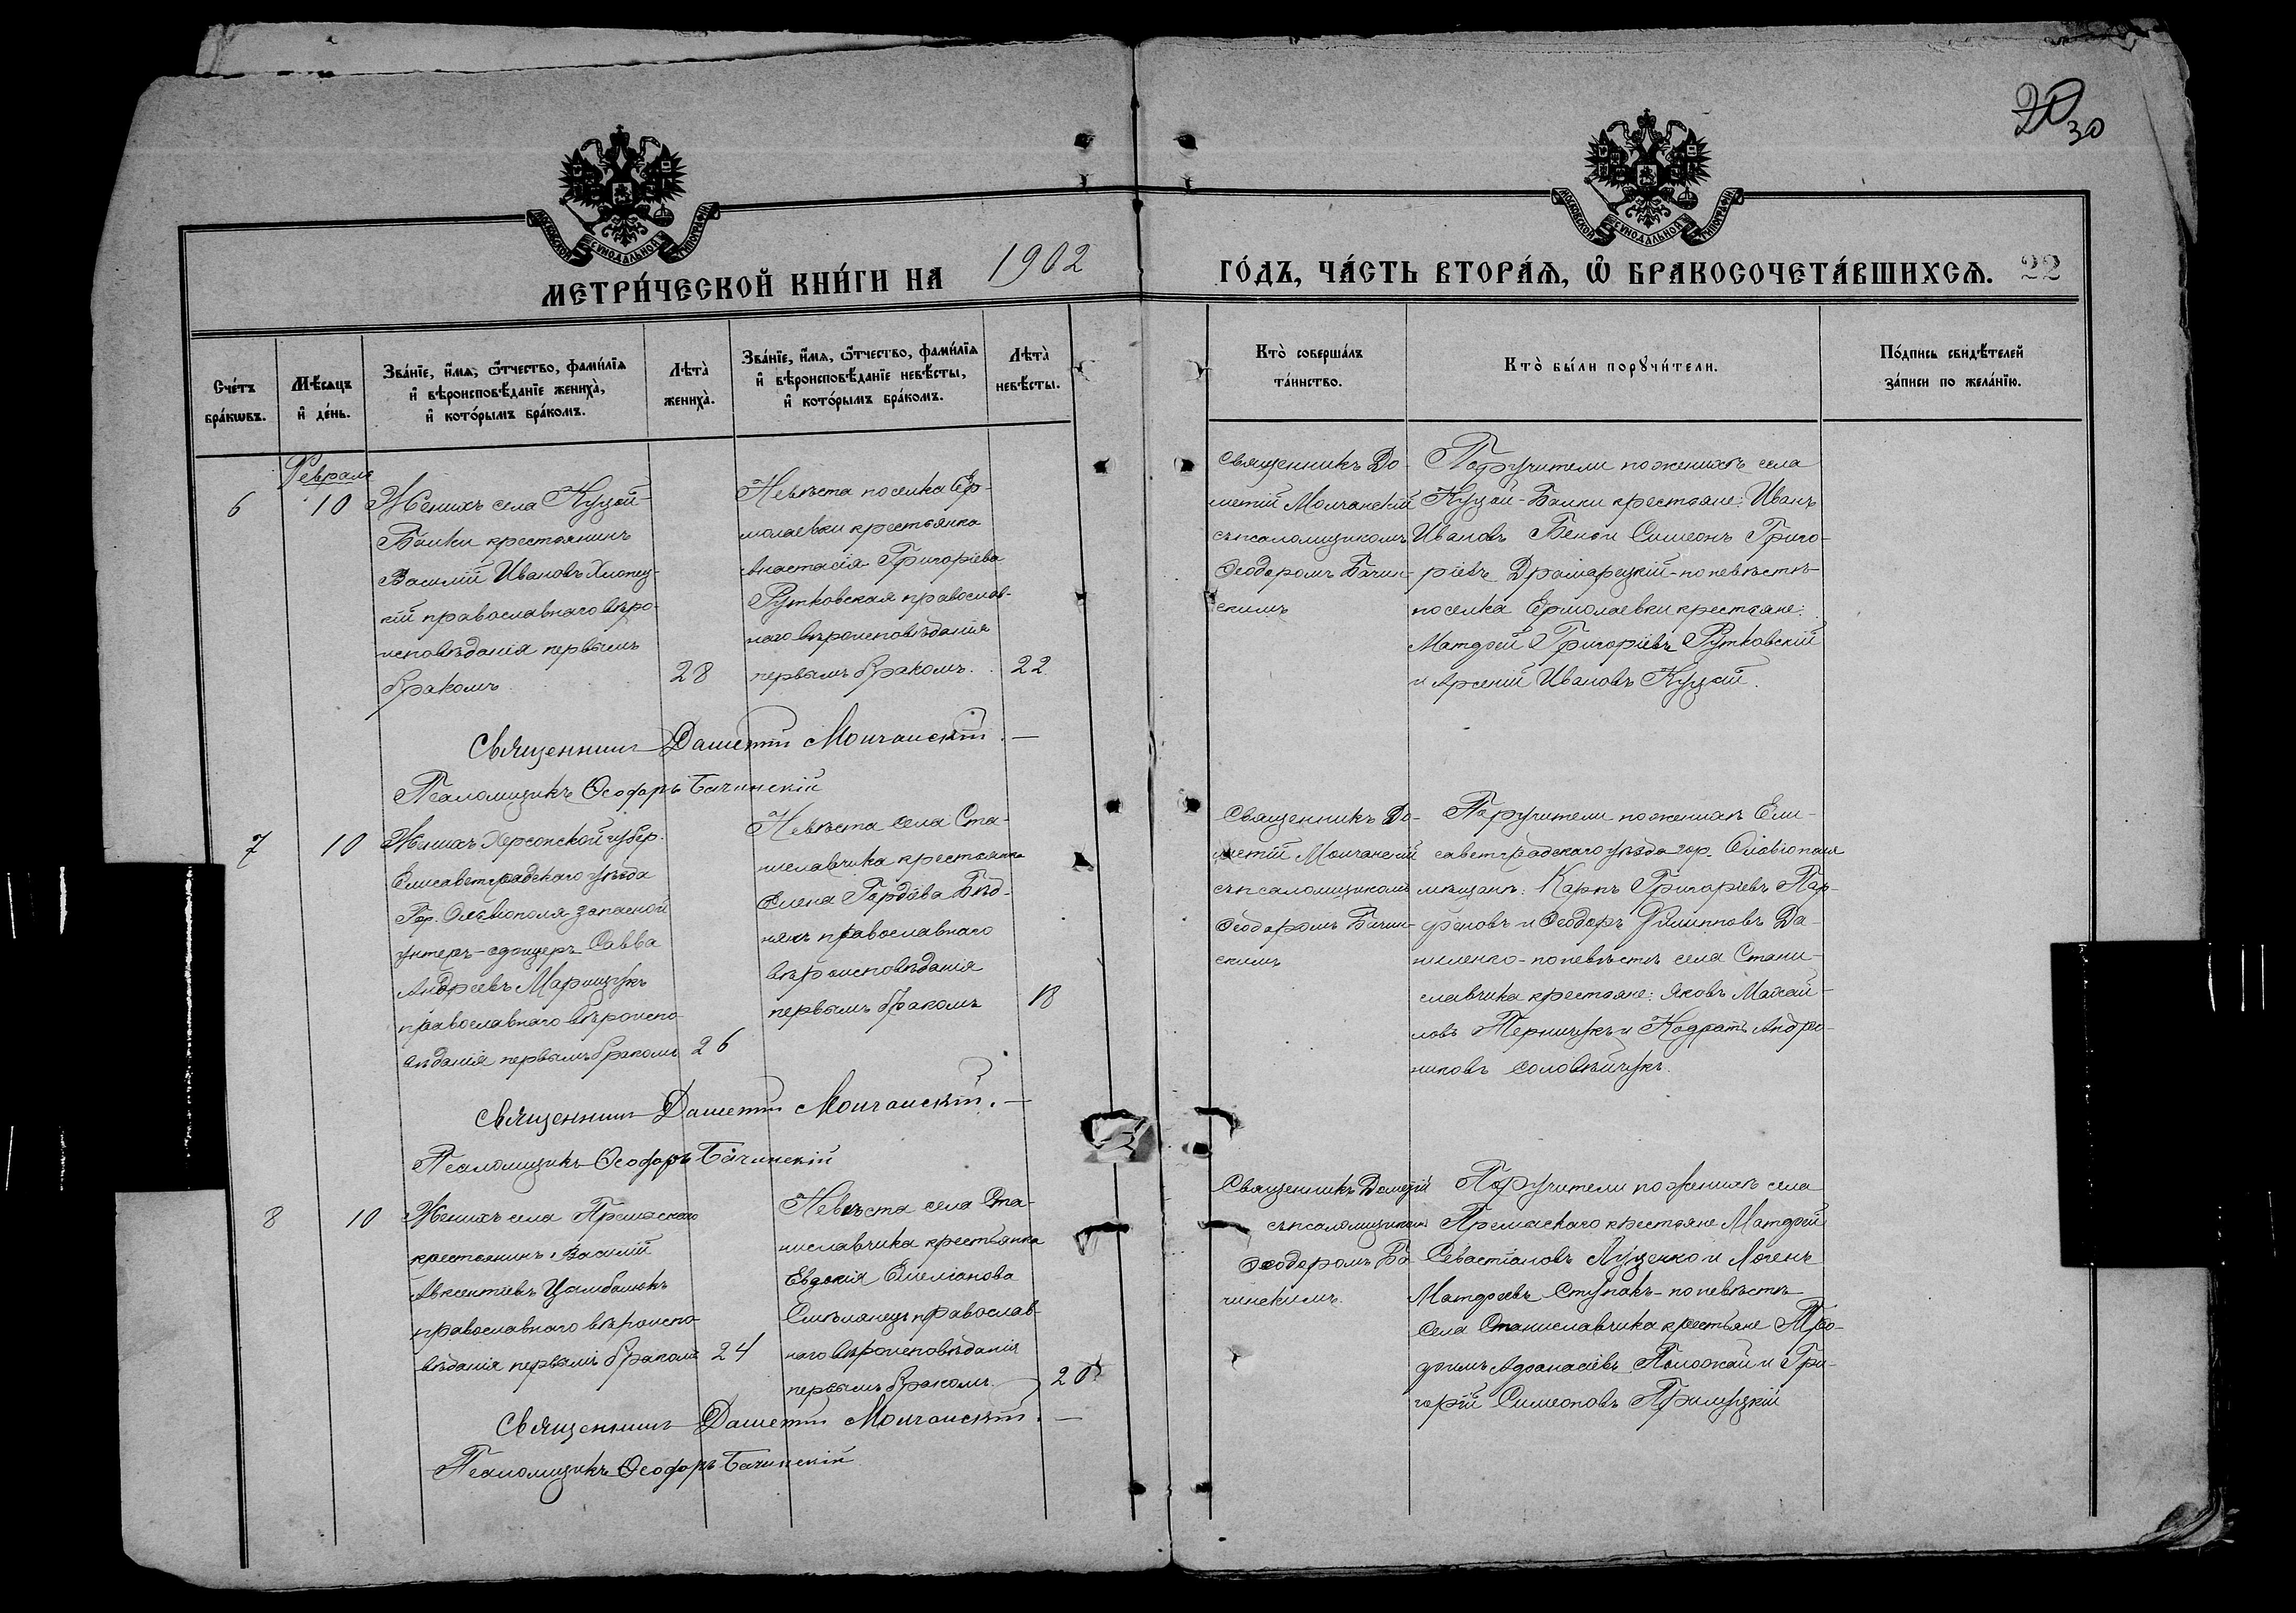 20 30
МОСКОВСКОЙ СѴНОДАЛЬНОЙ ТИПОГРАФІИ
МОСКОВСКОЙ СѴНОДАЛЬНОЙ ТИПОГРАФІИ
МЕТРИ́ЧЕСКОЙ КНИ́ГИ НА 1902 ГО́ДЪ, ЧА́СТЬ ВТОРА́Ѧ, Ѡ҆ БРАКОСОЧЕТА́ВШИХСѦ. 22
Сче́тъ
бра́кѡвъ.
Мѣ́сяцъ
и҆ де́нь.
Зва́нїе, и҆́мѧ, ѻ҆́тчество, фами́лїѧ
и҆ вѣроисповѣ́данїе жениха̀,
и҆ кото́рымъ бра́комъ.
Лѣта̀
жениха̀.
Зва́нїе, и҆́мѧ, ѻ҆́тчество, фами́лїѧ
и҆ вѣроисповѣ́данїе невѣ́сты,
и҆ кото́рымъ бра́комъ.
Лѣта̀
невѣ́сты.
Кто̀ соверша́лъ
та́инство.
Кто̀ бы́ли порꙋчи́тели.
По́дпись свидѣ́телей
за́писи по жела́нїю.
Февраль
6
10
Женихъ села Куцой-
Балки крестьянинъ
Василій Ивановъ Хлопец-
кій православнаго вѣро-
исповѣданія первымъ
бракомъ
28
Невѣста поселка Ер-
молаевки крестьянка
Анастасія Григоріева
Рутковская православ-
наго вѣроисповѣданія
первымъ бракомъ.
22
Священникъ До-
метій Молчанскій
съ псаломщикомъ
Ѳеодоромъ Бачин-
скимъ
Поручители по женихѣ села
Куцой-Балки крестьяне: Иванъ
Ивановъ и Симеонъ Григо-
ріевъ по невѣстѣ
поселка Ермолаевки крестьяне:
Матѳей Григоріевъ Рутковскій
и Арсеній Ивановъ Куцой.
Священникъ Дометій Молчанскій. —
Псаломщикъ Ѳеодоръ Бачинскій
7
10
Женихъ Херсонской губер.
Елисаветградскаго уѣзда
Гор. Ольвіополя запасной
унтеръ-офицеръ Савва
Андреевъ Марищукъ
православнаго вѣроиспо-
вѣданія первымъ бракомъ
26
Невѣста села Ста-
ниславчика крестьянка
Елена Гордѣева Бѣд-
някъ православнаго
вѣроисповѣданія
первымъ бракомъ
18
Священникъ До-
метій Молчанскій
съ псаломщикомъ
Ѳеодоромъ Бачин-
скимъ
Поручители по женихѣ Ели-
саветградскаго уѣзда гор. Ольвіополя
мѣщане: Карпъ Григоріевъ Пар-
феновъ и Ѳеодоръ Филипповъ Да-
ниленко - по невѣстѣ села Стани-
славчика крестьяне: Яковъ Михай-
ловъ и Кодратъ Андро-
никовъ Соловѣйчукъ.
Священникъ Дометій Молчанскій. —
Псаломщикъ Ѳеодоръ Бачинскій
8
10
Женихъ села
крестьянинъ Василій
Авксентіевъ Цымбалюкъ
православнаго вѣроиспо-
вѣданія первымъ бракомъ
24
Невѣста села Ста-
ниславчика крестьянка
Евдокія Емеліанова
Смѣлянецъ православ-
наго вѣроисповѣданія
первымъ бракомъ.
20
Священникъ Дометій
съ псаломщикомъ
Ѳеодоромъ Ба-
чинскимъ.
Поручители по женихѣ села
крестьяне Матѳей
Севастіановъ Луценко и
Матѳеевъ Ступакъ - по невѣстѣ
села Станиславчика крестьяне Тро-
фимъ Афанасіевъ и Гри-
горій Симеоновъ Прилуцкій
Священникъ Дометій Молчанскій. —
Псаломщикъ Ѳеодоръ Бачинскій